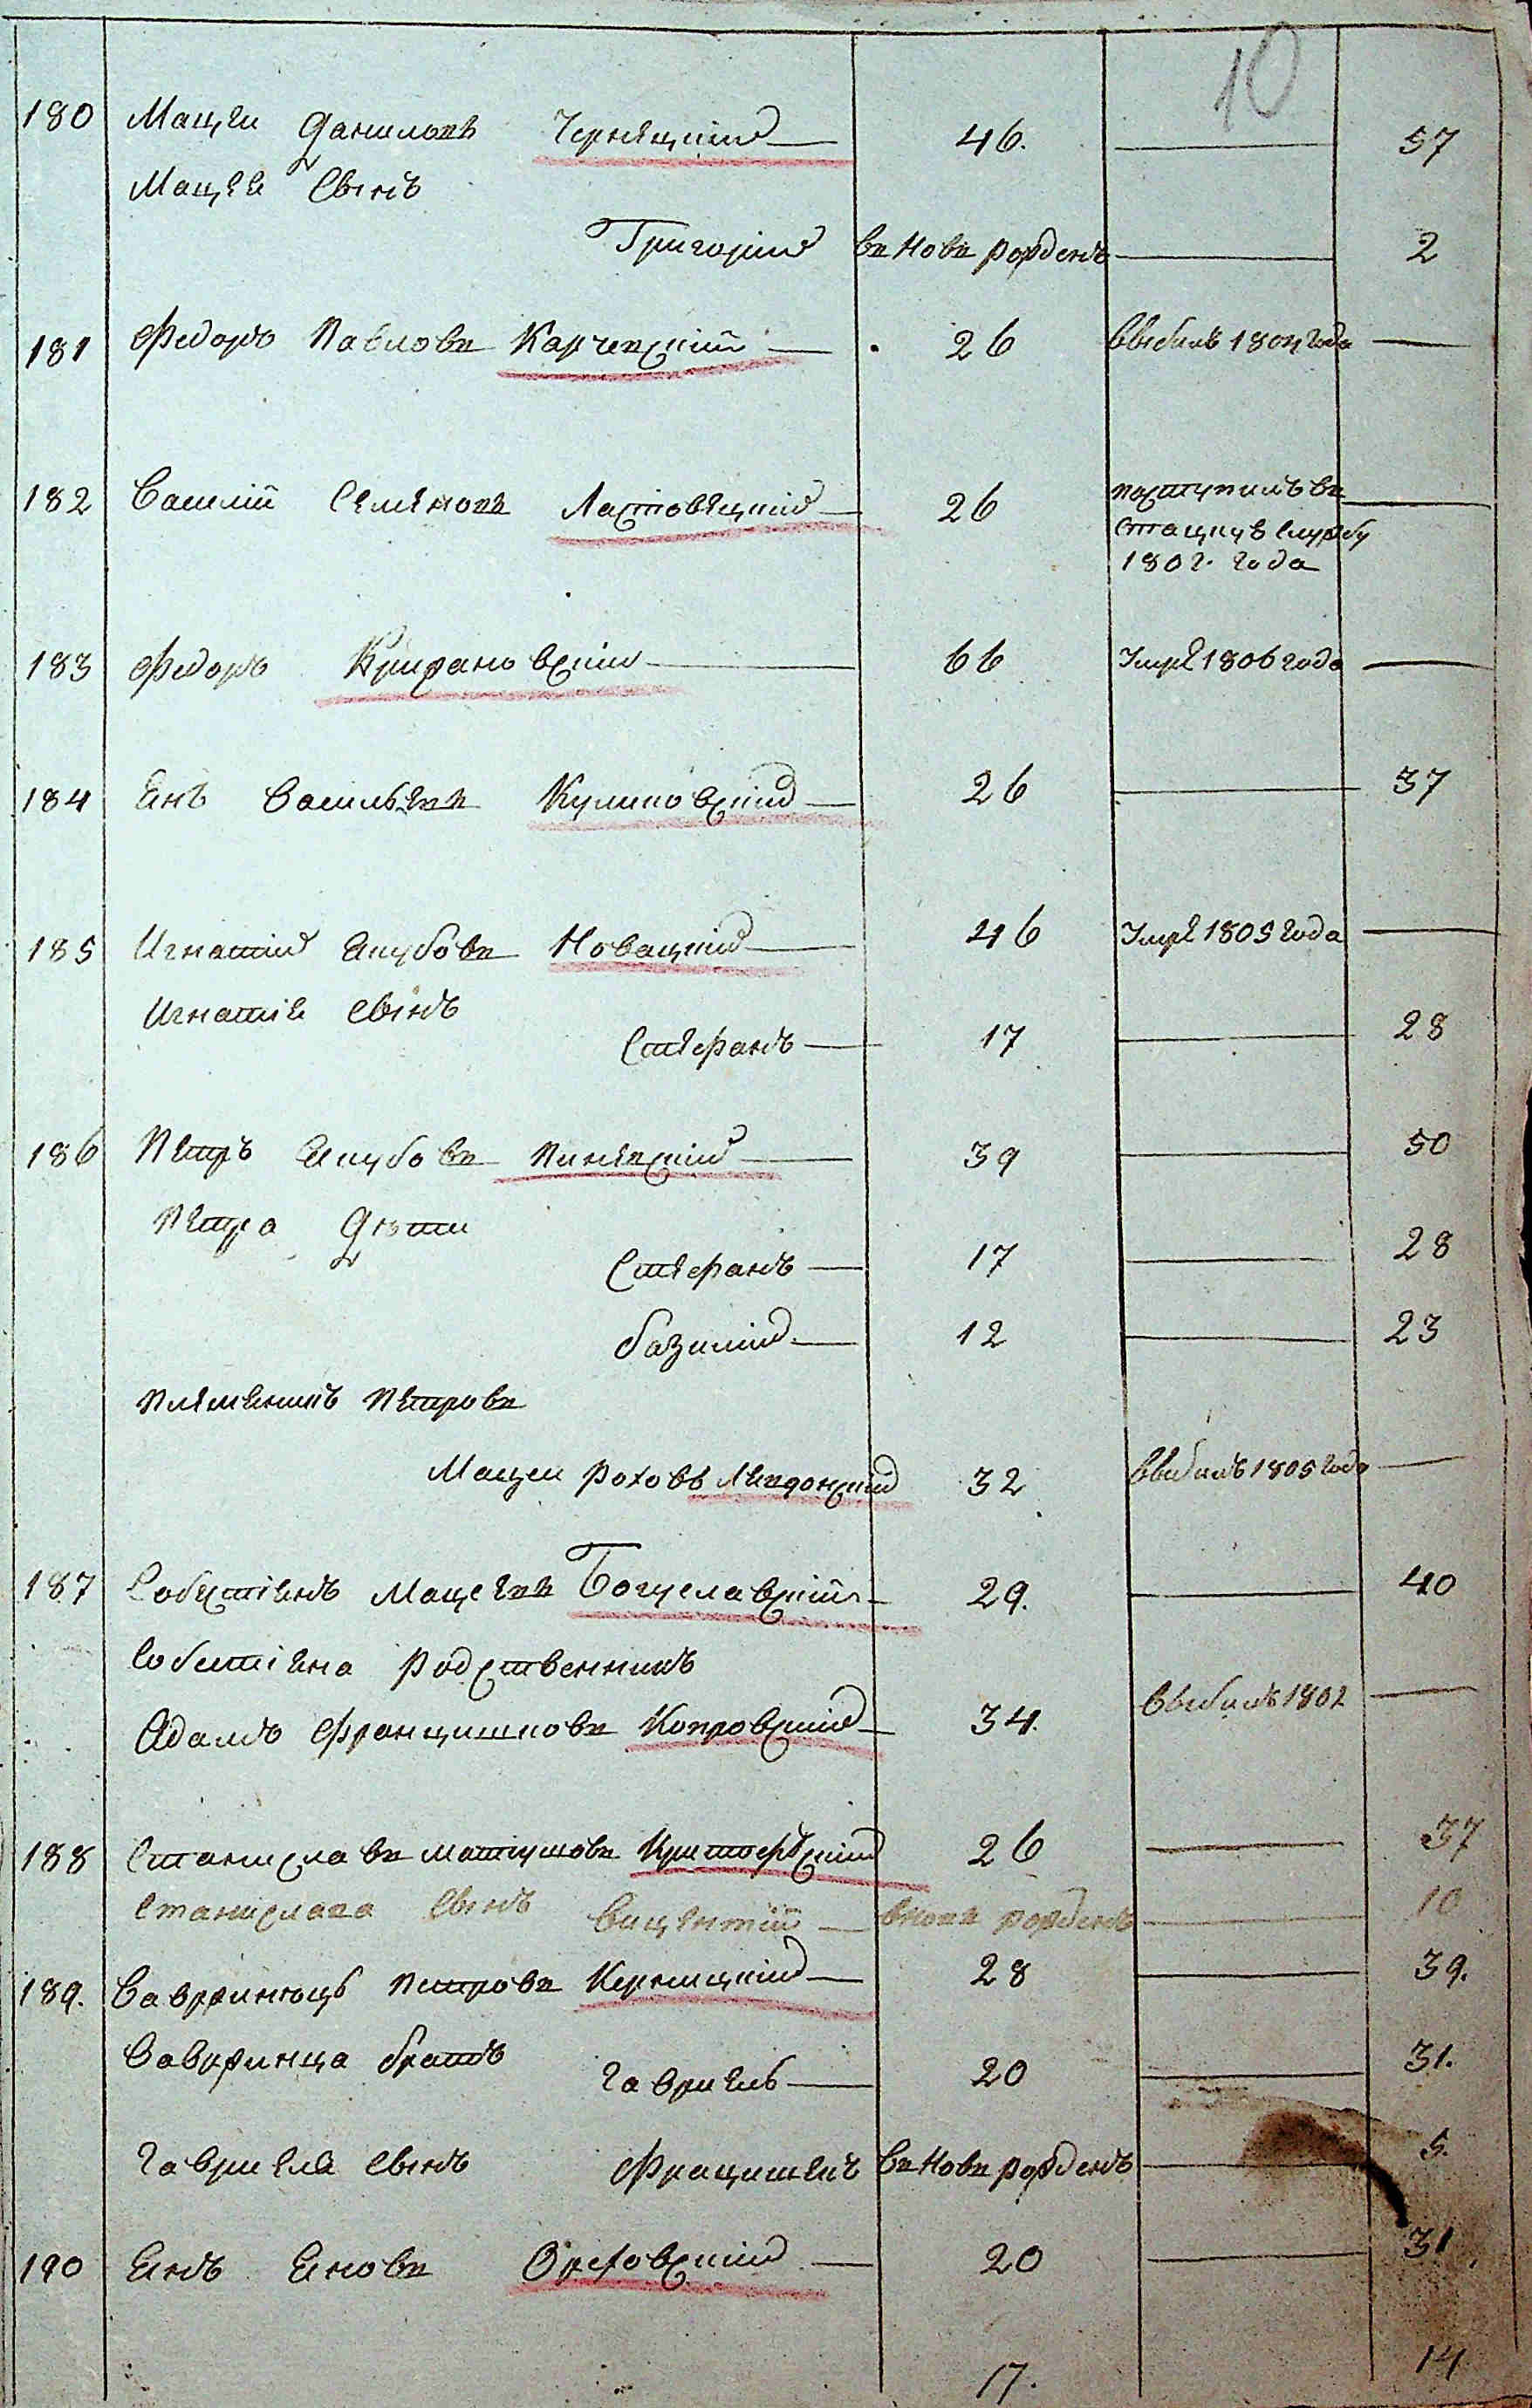 10
180 Мацеи Даниловъ Чернецкий — 46. — 57
Мацея Сынъ
Григорий въ новъ рожденъ — 2
181 Федоръ Павловъ Карчевский — 26 Выбылъ 1804 года —
182 Василий Семеновъ Ластовецкий — 26 поступилъ въ —
стацкую службу
1802. года
183 Федоръ Крижановский — 66 Умре 1806 года —
184 Янъ Васильевъ Куликовский — 26 — 37
185 Игнатий Якубовъ Новацкий — 46 Умре 1805 года —
Игнатия Сынъ
Стефанъ — 17 — 28
186 Петръ Якубовъ — 39 — 50
Петра Дѣти
Стефанъ — 17 — 28
Базилий — 12 — 23
Племеникъ Петровъ
Мацеи Роховъ 32 Выбылъ 1805 года —
187 Собестиянъ Мацеевъ Богуславский — 29. — 40
Собестияна родственникъ
Адамъ Францишковъ — 34. Выбылъ 1802 —
188 Станиславъ Матіушовъ 26 — 37
Станислава Сынъ Вицентий — вновъ рожденъ — 10
189. Вавринецъ Петровъ Керницкий — 28 — 39.
Вавринца братъ
Гавриель — 20 — 31.
Гавриеля Сынъ Фрацишекъ въ новъ рожденъ — 5.
190 Янъ Яновъ Ореховский — 20 — 31.
17. 14